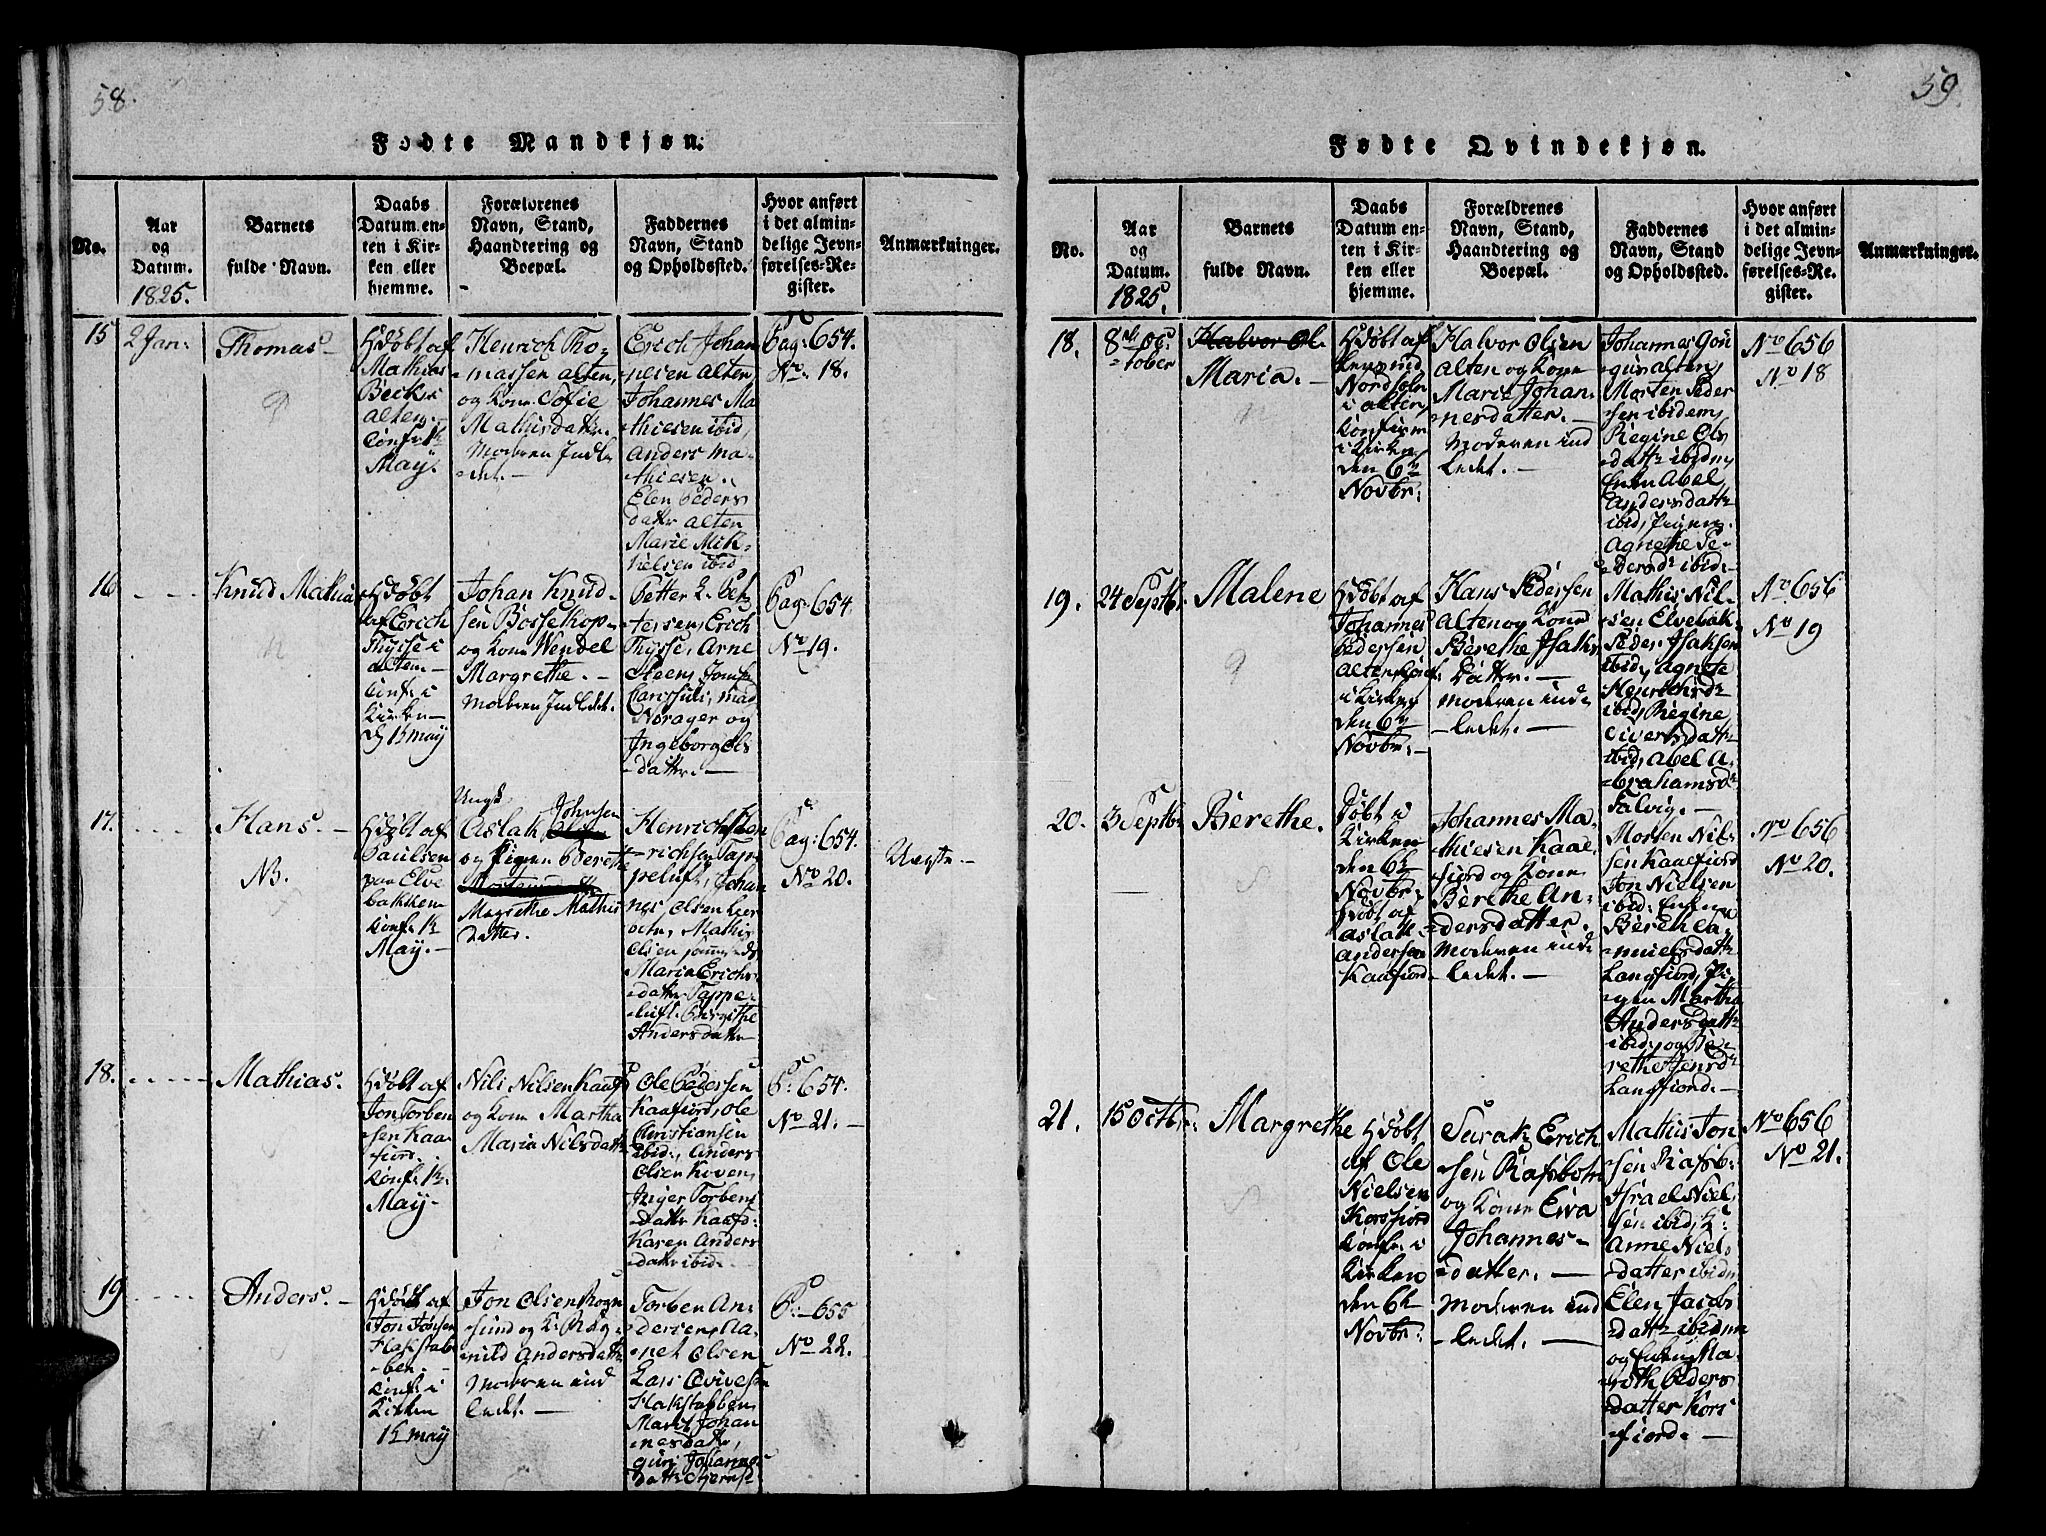 58.
Fødte Mandkjøn.
No.
Aar
og
Datum.
1825.
Barnets
fulde Navn.
Daabs
Datum en-
ten i Kir-
ken eller
hjemme.
Forældrenes
Navn, Stand,
Haandtering og
Boepæl.
Faddernes
Navn, Stand
og Opholdssted.
Hvor anført
i det almin-
delige Jevn-
førelses-Re-
gister.
Anmærkninger.
15
2 Jan:
Thomas
Hdøbt af
Mathias
Beck
alten
Conf:
May
Henrich Tho-
massen alten,
og Kone Sofie
Mathisdattr.
Moderen Indle
det.
Erich Johan
nesen alten
Johannes Ma
thiesen ibid,
Anders Ma-
thiesen
Elen Peders
dattr alten
Marie Mik-
kelsen ibid
Pag: 654.
No. 18.
16
Knud Mathias
Hdøbt
af Erich
Thysse i
alten
Conf: i
Kirken
May
Johan Knud
sen Bossekop
og Kone Wendel
Margrethe.
Moderen Indledet.
Petter
tersen, Erich
Thysse, Arne
Steen, Jomfr
mad
Norager og
Ingeborg Ols
datter.
Pag: 654.
No 19.
17.
Hans.
NB.
Hdøbt af
Paulsen
paa Elve
bakken
Conf:
May.
Ungk
Aslak Johnsen
og Pigen Berethe
Magrethe Mathis
datter.
Henrich Hen
richsen Tap-
peluft, Johan
nes Olsen
Mathis
Olsen
Maria Erichs
datter Tappe-
luft. Birgithe
Andersdattr
Pag: 654.
No 20.
Uægte.
18.
Mathias.
Hdøbt af
Jon Torben
sen Kaa
fiord.
Conf:
May
Nils Nilsen Kaafi
og Kone Martha
Maria Nilsdattr
Ole Pedersen
Kaafiord, Ole
Christiansen
ibid:, Anders
Olsen
Inger Torbens
dattr Kaafi:
Karen Anders
dattr ibid.
P: 654.
No 21.
19
Anders.
Hdøbt af
Jon
Flakstad
ben.
Conf: i
Kirken
may
Jon Olsen Rogn
sund og K: Rag-
nild Andersdattr
Moderen ind
ledt.
Torben An-
dersen, A-
net Olsen
Lars
Flakstabben
Marit Johan
nesdattr,
Guri Johannes
dattr
P: 655
No 22.
59.
Fødte Qvindekjøn.
No.
Aar
og
Datum.
1825.
Barnets
fulde Navn.
Daabs
Datum en-
ten i Kir-
ken eller
hjemme.
Forældrenes
Navn, Stand,
Haandtering og
Boepæl.
Faddernes
Navn, Stand
og Opholdssted.
Hvor anført
i det almin-
delige Jevn-
førelses-Re-
gister.
Anmærkninger.
18.
8de Oc-
tober
Halvor Ol.
Maria.
Hdøbt af
i alten
Confirm
i Kirken
den 6te
Novbr:
Halvor Olsen
alten og Kone
Marie Johan-
nesdatter.
Moderen ind
ledet.
Johannes
alten,
Morten Peder
sen ibidem,
Regine Ols
datter ibidm,
Enken Abel
Andersdattr
ibid, Pigen
Agnethe Pe-
dersdr ibid:
No 656
No 18
19.
24 Septbr.
Malene
Hdøbt af
Johannes
Pedersen
alten
i Kirken
den 6te
Novbr:
Hans Pedersen
alten og Kone
Berethe Isaks
datter.
Moderen ind
ledet.
Mathis Nil-
sen Elvebak-
Peder Isaksen
ibid, Agnete
Henrichsdr
ibid, Regine
Siversdattr
ibid, Abel A-
brahamsdr
Talvig.
No 656
No 19
20.
3 Septbr
Berethe.
Døbt i
Kirken
den 6te
Novbr.
Hdøbt af
Aslak
Andersen
Kaafiord
Johannes Ma-
thiesen Kaa-
fiord og Kone
Berethe An-
dersdatter.
Moderen ind
ledet.
Morten Nil-
sen Kaafiord
Jon Nielsen
ibid: Enken
Bereth
nielsdattr
Langfiord, Pi-
gen Martha
Andersdattr
ibid, og Be-
rethe Jensdr
Langfiord.
No 656
No 20.
21.
15 Octbr:
Margrethe
Hdøbt
af Ole
Nielsen
Korsfiord
Conf: i
Kirken
den 6te
Novbr:
Surak Erich
sen Rafsbotn
og Kone Ewa
Johannes-
datter.
Moderen ind
ledet.
Mathis Jon
sen Rafsb:
Israel Niel
sen ibid, K:
Anne Niels
datter ibidm
Elen Jacobs
dattr ibidm
og Enken Ma-
reth Peders
datter Kors
fiord.
No 656
No 21.